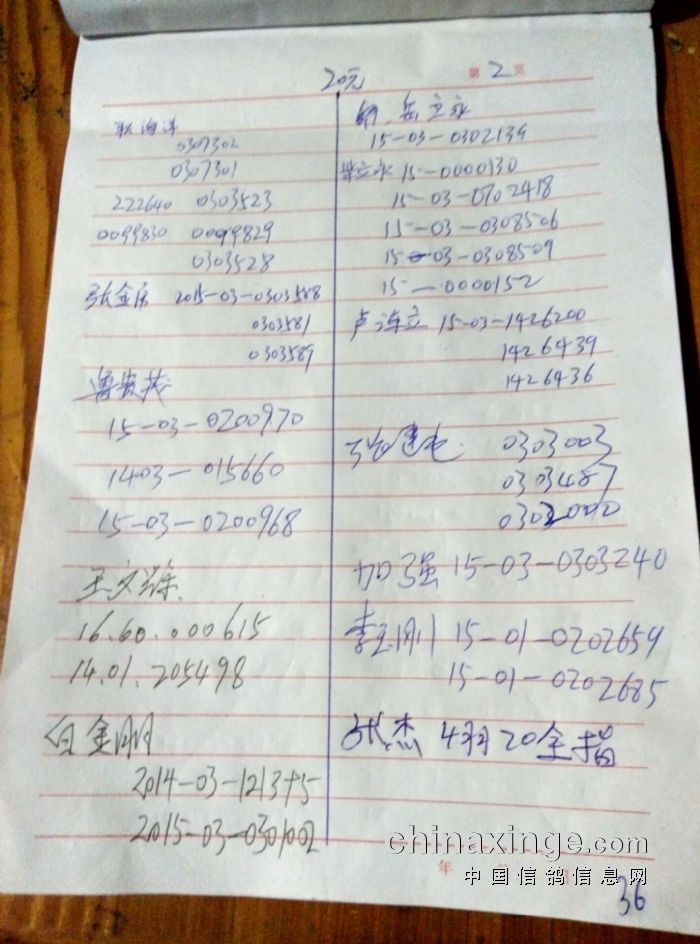 20元
第2页
耿海洋
0307302
0307301
222640 0303523
0099830 0099829
0303528
张金房 2015-03-0303588
0303581
0303589
15-03-0200970
1403-015660
15-03-0200968
王文
16.60.000615
14.01.205498
白金刚
2014-03-1213
2015-03-0301002
岳立永
15-03-0302139
岳立永 15-0000130
15-03-0702418
15-03-0308506
15-03-0308509
15-0000152
卢连立 15-03-1426200
1426439
1426436
张建
0303003
0303487
加强 15-03-0303240
李玉刚 15-01-0202659
15-01-0202685
张杰 4羽 20全指
年
chinaxinge.com
中国信鸽信息网
36